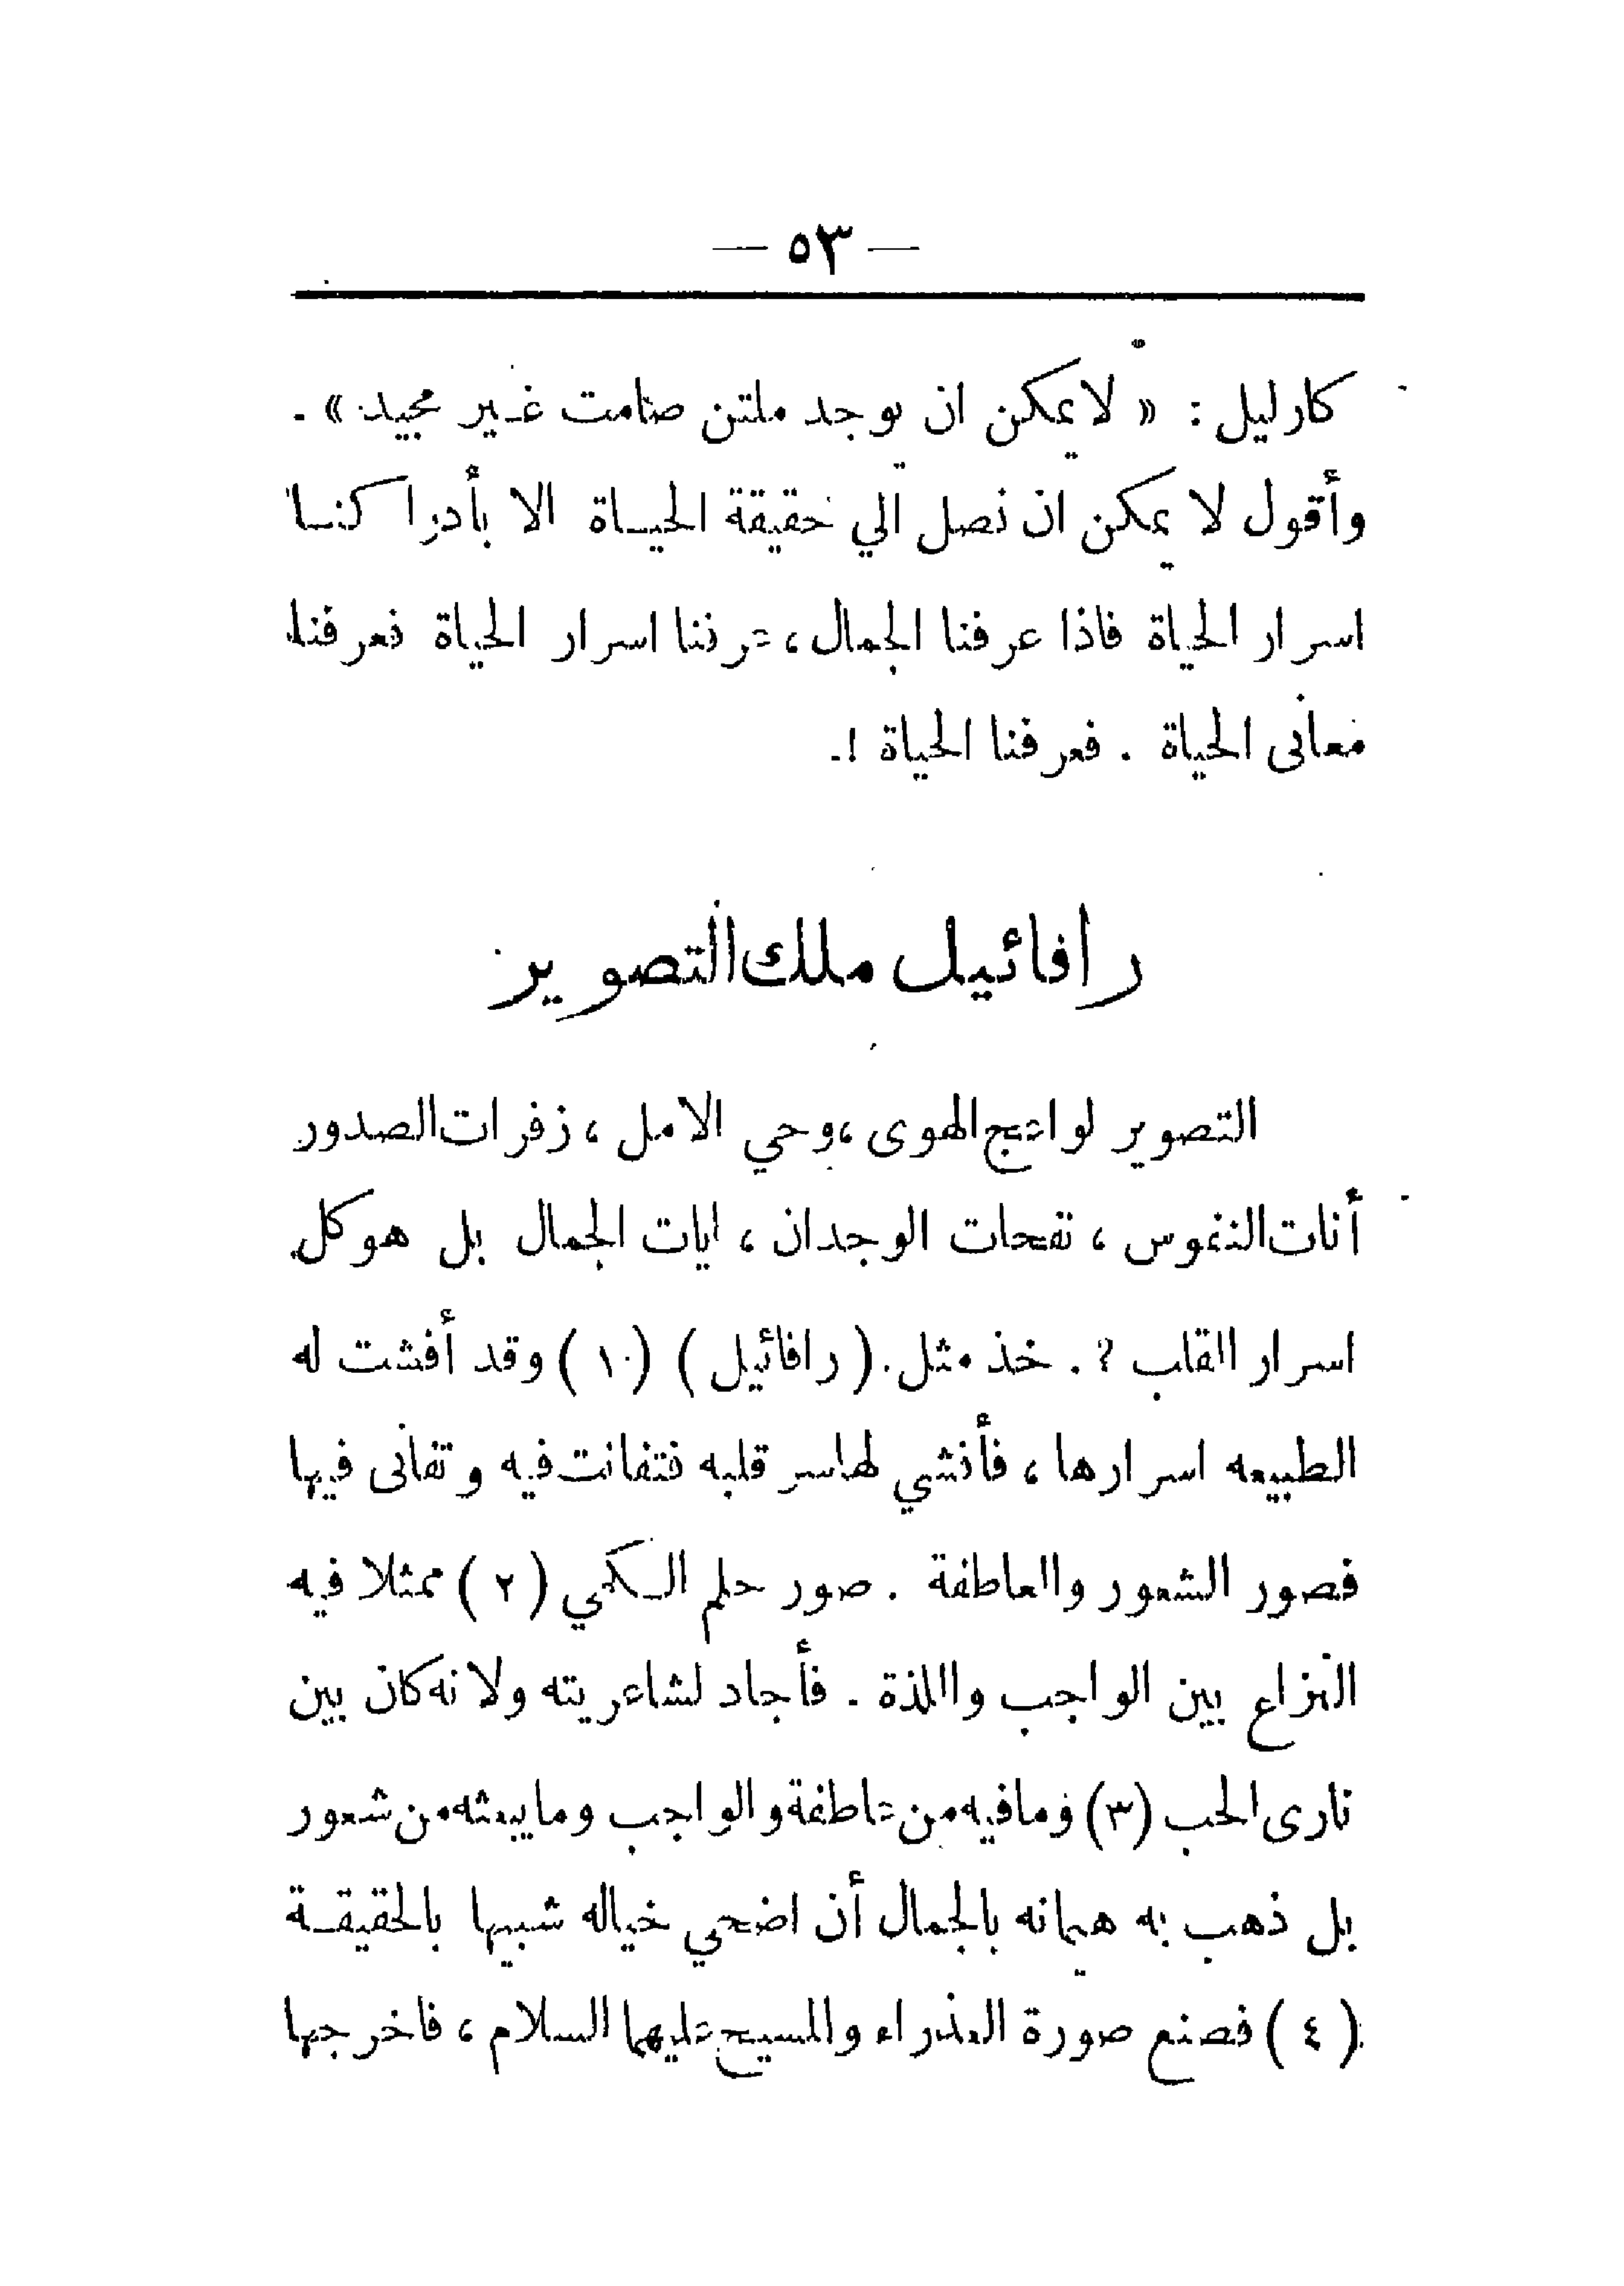 — ٥٣ —
كارليل : « لا يمكن ان يوجد ملتن صامت غير مجيد » .
وأقول لا يمكن ان نصل الي حقيقة الحياة الا بأدراكنا
اسرار الحياة فاذا عرفنا الجمال ، عرفنا اسرار الحياة فعرفنا
معانى الحياة . فعرفنا الحياة !.
رافائيل ملك التصوير
التصوير لواعج الهوى ، وحي الامل ، زفرات الصدور
أنات النفوس ، نفحات الوجدان ، ايات الجمال بل هو كل
اسرار القلب ? . خذ مثل . ( رافائيل ) ( ١ ) وقد أفشت له
الطبيعه اسرارها ، فأفشي لها سر قلبه فتفانت فيه وتفانى فيها
فصور الشعور والعاطفة . صور حلم الكمي ( ٢ ) ممثلا فيه
النزاع بين الواجب واللذة . فأجاد لشاعريته ولانه كان بين
نارى الحب (٣) وما فيه من عاطفة والواجب وما يبعثه من شعور
بل ذهب به هيمانه بالجمال أن اضحي خياله شبيها بالحقيقة
( ٤ ) فصنع صورة العذراء والمسيح عليهما السلام ، فاخرجها